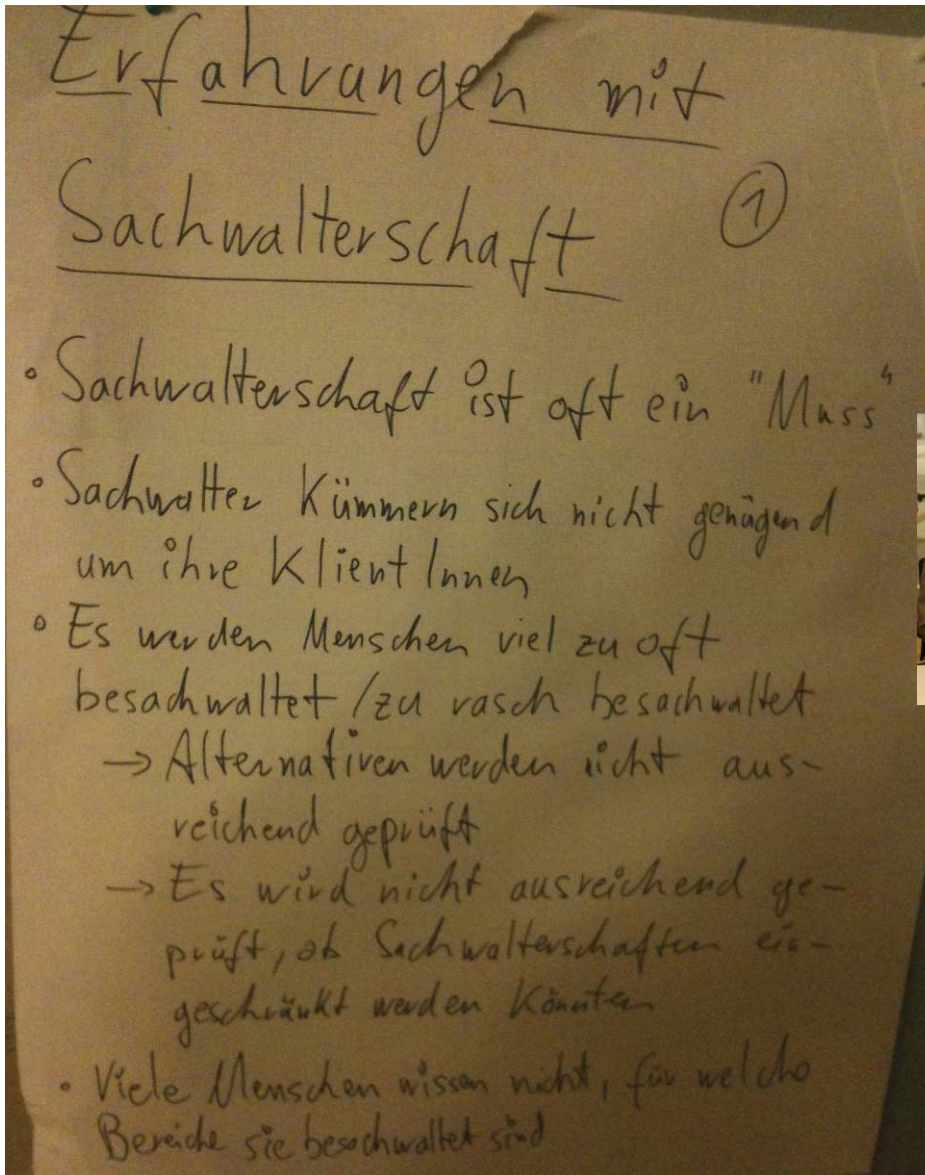 Erfahrungen mit
Sachwalterschaft ①
• Sachwalterschaft ist oft ein "Muss"
• Sachwalter Kümmern sich nicht genügend
um ihre KlientInnen
• Es werden Menschen viel zu oft
besachwaltet / zu rasch besachwaltet
→ Alternativen werden nicht aus-
reichend geprüft
→ Es wird nicht ausreichend ge-
prüft, ob Sachwalterschaften ein-
geschränkt werden Könnten
• Viele Menschen wissen nicht, für welche
Bereiche sie besachwaltet sind